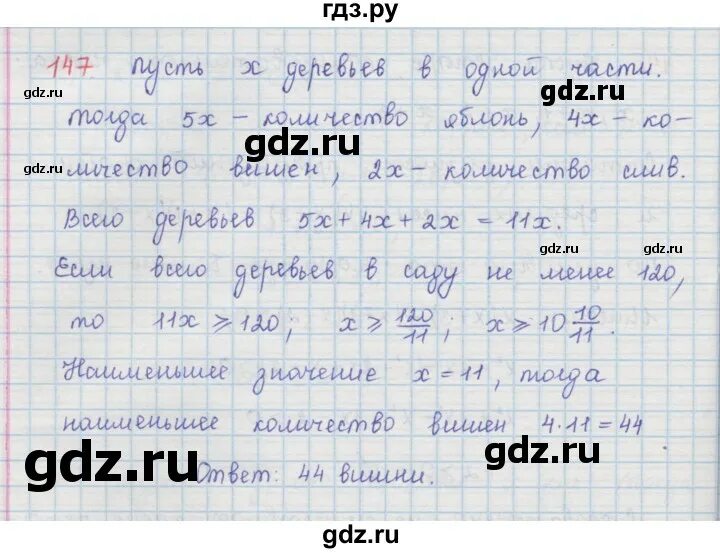 гдз.ру
147 пусть x деревьев в одной части.
gdz.ru
gdz.ru
тогда 5x – количество яблонь, 4x – ко-
gdz.ru
личество вишен, 2x – количество слив.
gdz.ru
gdz.ru
Всего деревьев 5x + 4x + 2x = 11x.
gdz.ru
gdz.ru
Если всего деревьев в саду не менее 120,
то 11x ⩾ 120; x ⩾ 120/11; x ⩾ 10 10/11.
gdz.ru
gdz.ru
Наименьшее значение x = 11, тогда
gdz.ru
наименьшее количество вишен 4·11 = 44
gdz.ru
gdz.ru
gdz.ru
Ответ: 44 вишни.
gdz.ru
gdz.ru